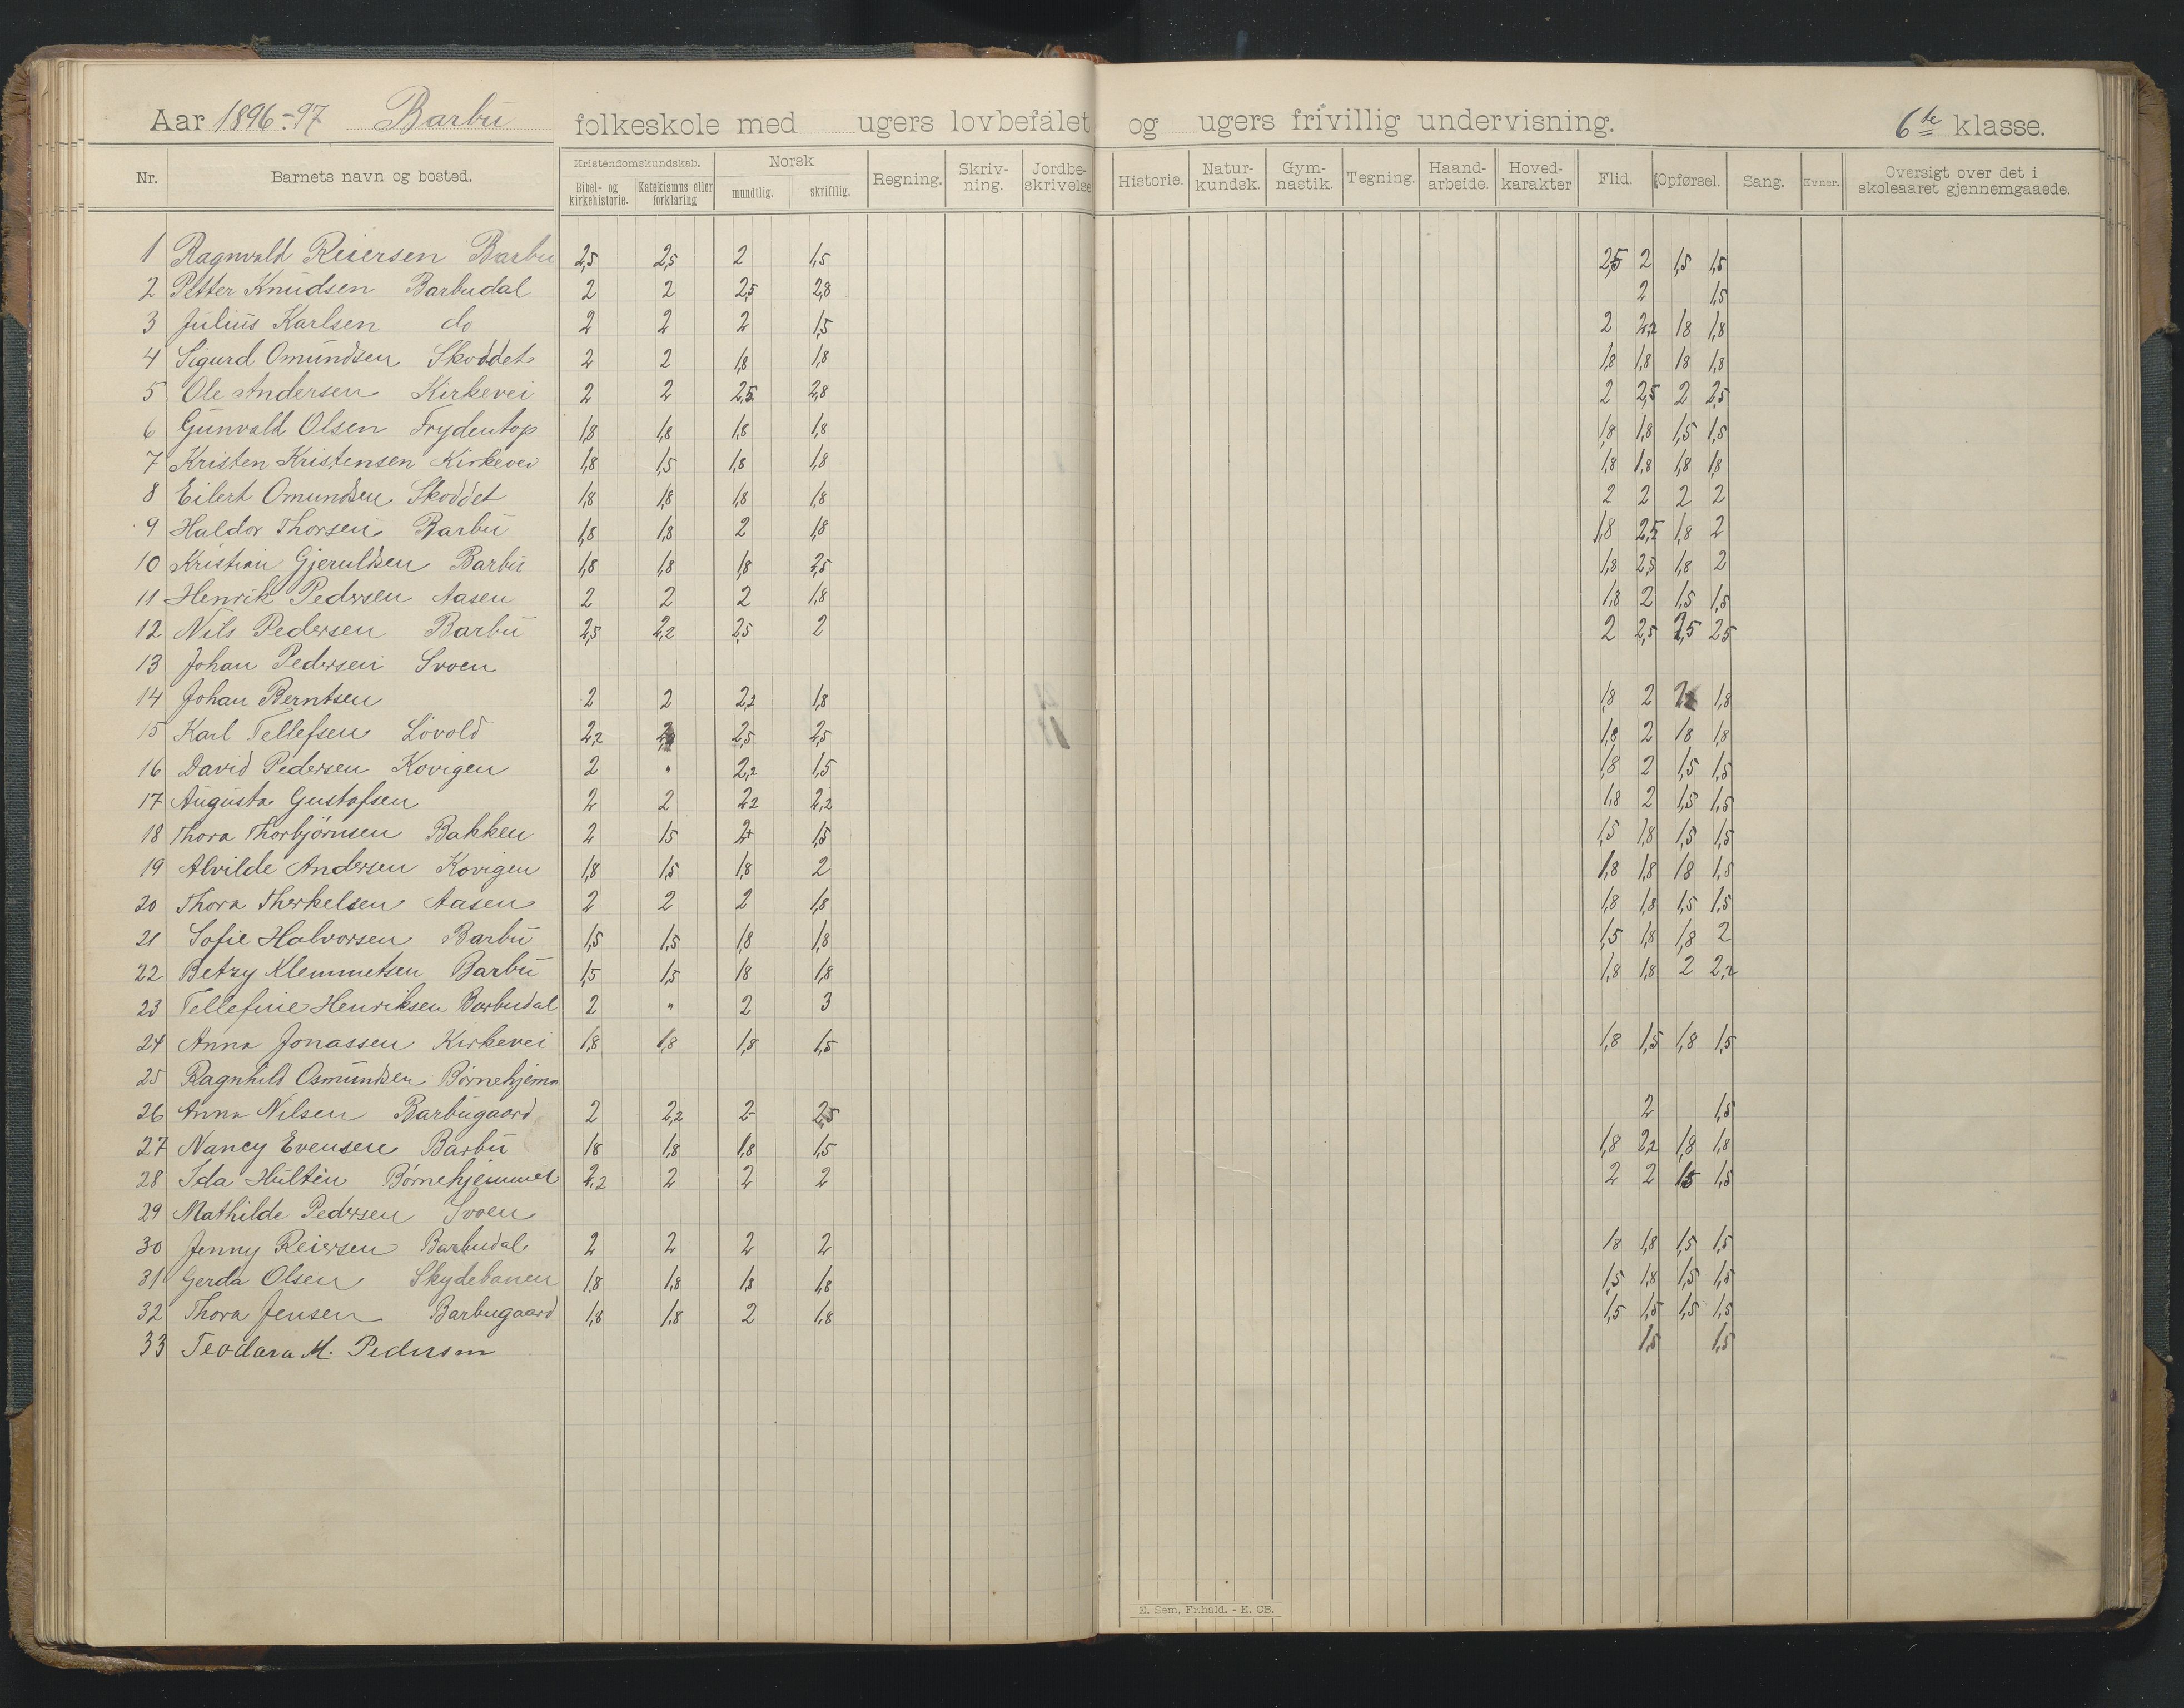 Aar 1896-97 Barbu folkeskole med ugers lovbefalet og ugers frivillig undervisning. 6te klasse.
Nr. Barnets navn og bosted. Kristendomskundskab. Bibel- og kirkehistorie. Katekismus eller forklaring Norsk mundtlig. skriftlig. Regning. Skriv-ning. Jordbe-skrivelse Historie. Natur-kundsk. Gym-nastik. Tegning. Haand-arbeide. Hoved-karakter Flid. Opførsel. Sang. Evner. Oversigt over det i skoleaaret gjennemgaaede.
1 Ragnvald Reiersen Barbu 2,5 2,5 2 1,5 2,5 2 1,5 1,5
2 Petter Knudsen Barbudal 2 2 2,5 2,8 2 1,5
3 Julius Karlsen do 2 2 2 1,5 2 2,2 1,8 1,8
4 Sigurd Omundsen Skoddet 2 2 1,8 1,8 1,8 1,8 1,8 1,8
5 Ole Andersen Kirkevei 2 2 2,5 2,8 2 2,5 2 2,5
6 Gunvald Olsen Frydentop 1,8 1,8 1,8 1,8 1,8 1,8 1,5 1,5
7 Kristen Kristensen Kirkevei 1,8 1,5 1,8 1,8 1,8 1,8 1,8 1,8
8 Eilert Omundsen Skoddet 1,8 1,8 1,8 1,8 2 2 2 2
9 Haldor Thorsen Barbu 1,8 1,8 2 1,8 1,8 2,5 1,8 2
10 Kristian Gjeruldsen Barbu 1,8 1,8 1,8 2,5 1,8 2,5 1,8 2
11 Henrik Pedersen Aasen 2 2 2 1,8 1,8 2 1,5 1,5
12 Nils Pedersen Barbu 2,5 2,2 2,5 2 2 2,5 2,5 2,5
13 Johan Pedersen Svoen
14 Johan Berntsen 2 2 2,2 1,8 1,8 2 2 1,8
15 Karl Tellefsen Lövold 2,2 2,5 2,5 1,8 2 1,8 1,8
16 David Pedersen Kovigen 2 " 2,2 1,5 1,8 2 1,5 1,5
17 Augusta Gustafsen 2 2 2,2 2,2 1,8 2 1,5 1,5
18 Thora Thorbjörnsen Bakken 2 1,5 2+ 1,5 1,5 1,8 1,5 1,5
19 Alvilde Andersen Kovigen 1,8 1,5 1,8 2 1,8 1,8 1,8 1,8
20 Thora Therkelsen Aasen 2 2 2 1,8 1,8 1,8 1,5 1,5
21 Sofie Halvorsen Barbu 1,5 1,5 1,8 1,8 1,5 1,8 1,8 2
22 Betzy Klemmetsen Barbu 1,5 1,5 1,8 1,8 1,8 1,8 2 2,2
23 Tellefine Henriksen Barbudal 2 " 2 3
24 Anna Jonassen Kirkevei 1,8 1,8 1,8 1,5 1,8 1,5 1,8 1,5
25 Ragnhild Osmundsen Börnehjemm
26 Anna Nilsen Barbugaard 2 2,2 2- 2,5 2 1,5
27 Nancy Evensen Barbu 1,8 1,8 1,8 1,5 1,8 2,2 1,8 1,8
28 Ida Hultin Börnehjemmet 2,2 2 2 2 2 2 1,5 1,5
29 Mathilde Pedersen Svoen
30 Jenny Reiersen Barbudal 2 2 2 2 1,8 1,8 1,5 1,5
31 Gerda Olsen Skydebanen 1,8 1,8 1,8 1,8 1,5 1,8 1,5 1,5
32 Thora Jensen Barbugaard 1,8 1,8 2 1,8 1,5 1,5 1,5 1,5
33 Teodara M. Pedersen 1,5 1,5
E. Sem. Fr.hald. - E. CB.